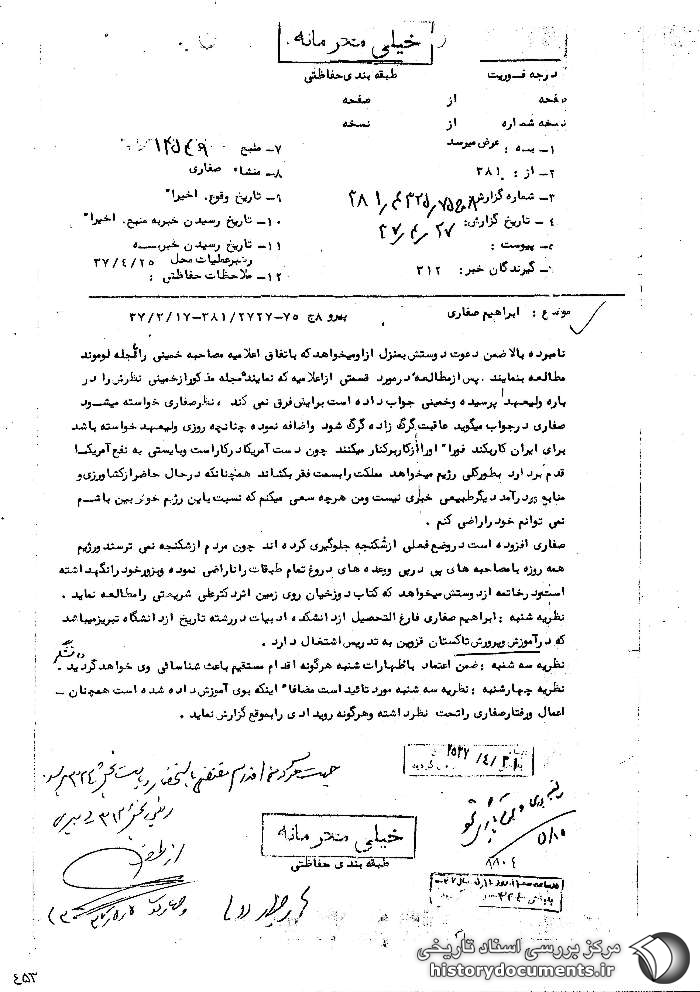 خیلی محرمانه
درجه فوریت
طبقه بندی حفاظتی
صفحه از صفحه
نسخه شماره از نسخه
۱- به : عرض میرسد
۷- منبع ۱۲۵۴۹
۲- از : ۳۸۱
۸- منشاء صفاری
۳- شماره گزارش
۹- تاریخ وقوع، اخیرا"
۴- تاریخ گزارش: ۲۷/۴/۳۷
۱۰- تاریخ رسیدن خبر به منبع، اخیرا"
پیوست :
۱۱- تاریخ رسیدن خبر به
رهبرعملیات محل ۳۷/۴/۲۵
گیرندگان خبر: ۳۱۲
۱۲- ملاحظات حفاظتی :
موضوع : ابراهیم صفاری پیرو ۸ج ۷۵-۳۸۱/۲۷۲۷-۳۷/۳/۱۷
نامبرده بالا ضمن دعوت دوستش بمنزل از او میخواهد که باتفاق اعلامیه مصاحبه خمینی را با مجله لوموند
مطالعه بنمایند . پس از مطالعه در مورد قسمتی از اعلامیه که نماینده مجله مذکور از خمینی نظرش را در
باره ولیعهد پرسیده و خمینی جواب داده است برایش فرق نمی کند ، نظر صفاری خواسته میشود
صفاری در جواب میگوید عاقبت گرگ زاده گرگ شود واضافه نموده چنانچه روزی ولیعهد خواسته باشد
برای ایران کار بکند فورا" او را از کار برکنار میکنند چون دست آمریکا در کار است و بایستی به نفع آمریکا
قدم بردارد بطور کلی رژیم میخواهد مملکت را بسمت فقر بکشاند همچنانکه در حال حاضر از کشاورزی و
منابع ودرآمد دیگر طبیعی خبری نیست ومن هرچه سعی میکنم که نسبت باین رژیم خوش بین باشم
نمی توانم خود را راضی کنم .
صفاری افزوده است در وضع فعلی از شکنجه جلوگیری کرده اند چون مردم از شکنجه نمی ترسند و رژیم
همه روزه با مصاحبه های پی در پی و وعده های دروغ تمام طبقات را ناراضی نموده و بزور خود را نگهداشته
است و در خاتمه از دوستش میخواهد که کتاب دوزخیان روی زمین اثر دکتر علی شریعتی را مطالعه نماید .
نظریه شنبه : ابراهیم صفاری فارغ التحصیل از دانشکده ادبیات در رشته تاریخ از دانشگاه تبریز میباشد
که در آموزش و پرورش تاکستان قزوین به تدریس اشتغال دارد .
نظریه سه شنبه : ضمن اعتماد باظهارات شنبه هرگونه اقدام مستقیم باعث شناسائی وی خواهد گردید .
نظریه چهارشنبه : نظریه سه شنبه مورد تائید است مضافا" اینکه بوی آموزش داده شده است همچنان -
اعمال و رفتار صفاری را تحت نظر داشته و هرگونه رویدادی را بموقع گزارش نماید .
۲۵۳۷/۴/۳۱
خیلی محرمانه
طبقه بندی حفاظتی
۸۸۰۴
مرکز بررسی اسناد تاریخی
historydocuments.ir
۴۵۳